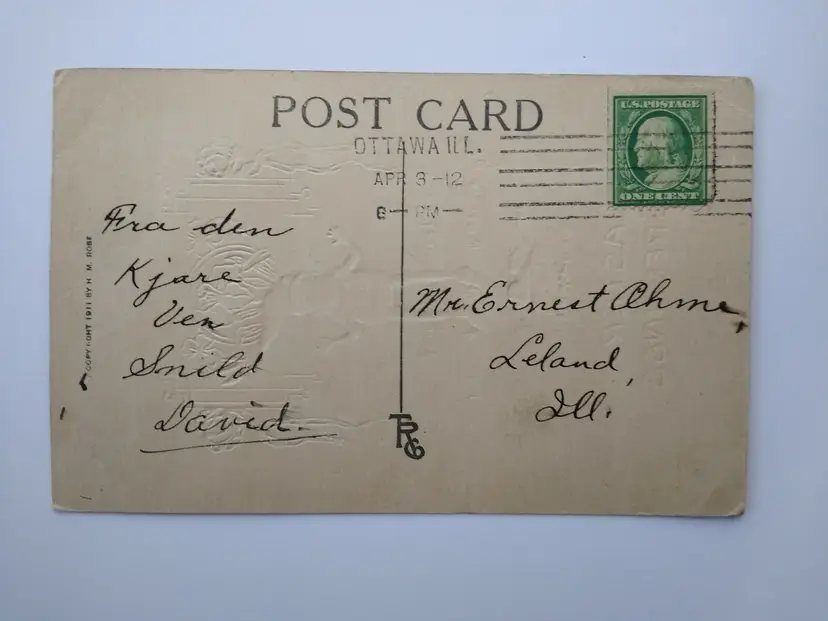 POST CARD
U.S. POSTAGE
ONE CENT
OTTAWA ILL.
APR 3 -12
6 - PM -
Fra den
Kjare
Ven
Snild
David.
Mr. Ernest Ohme,
Leland,
Ill.
COPYRIGHT 1911 BY H. M. ROSE
TRG